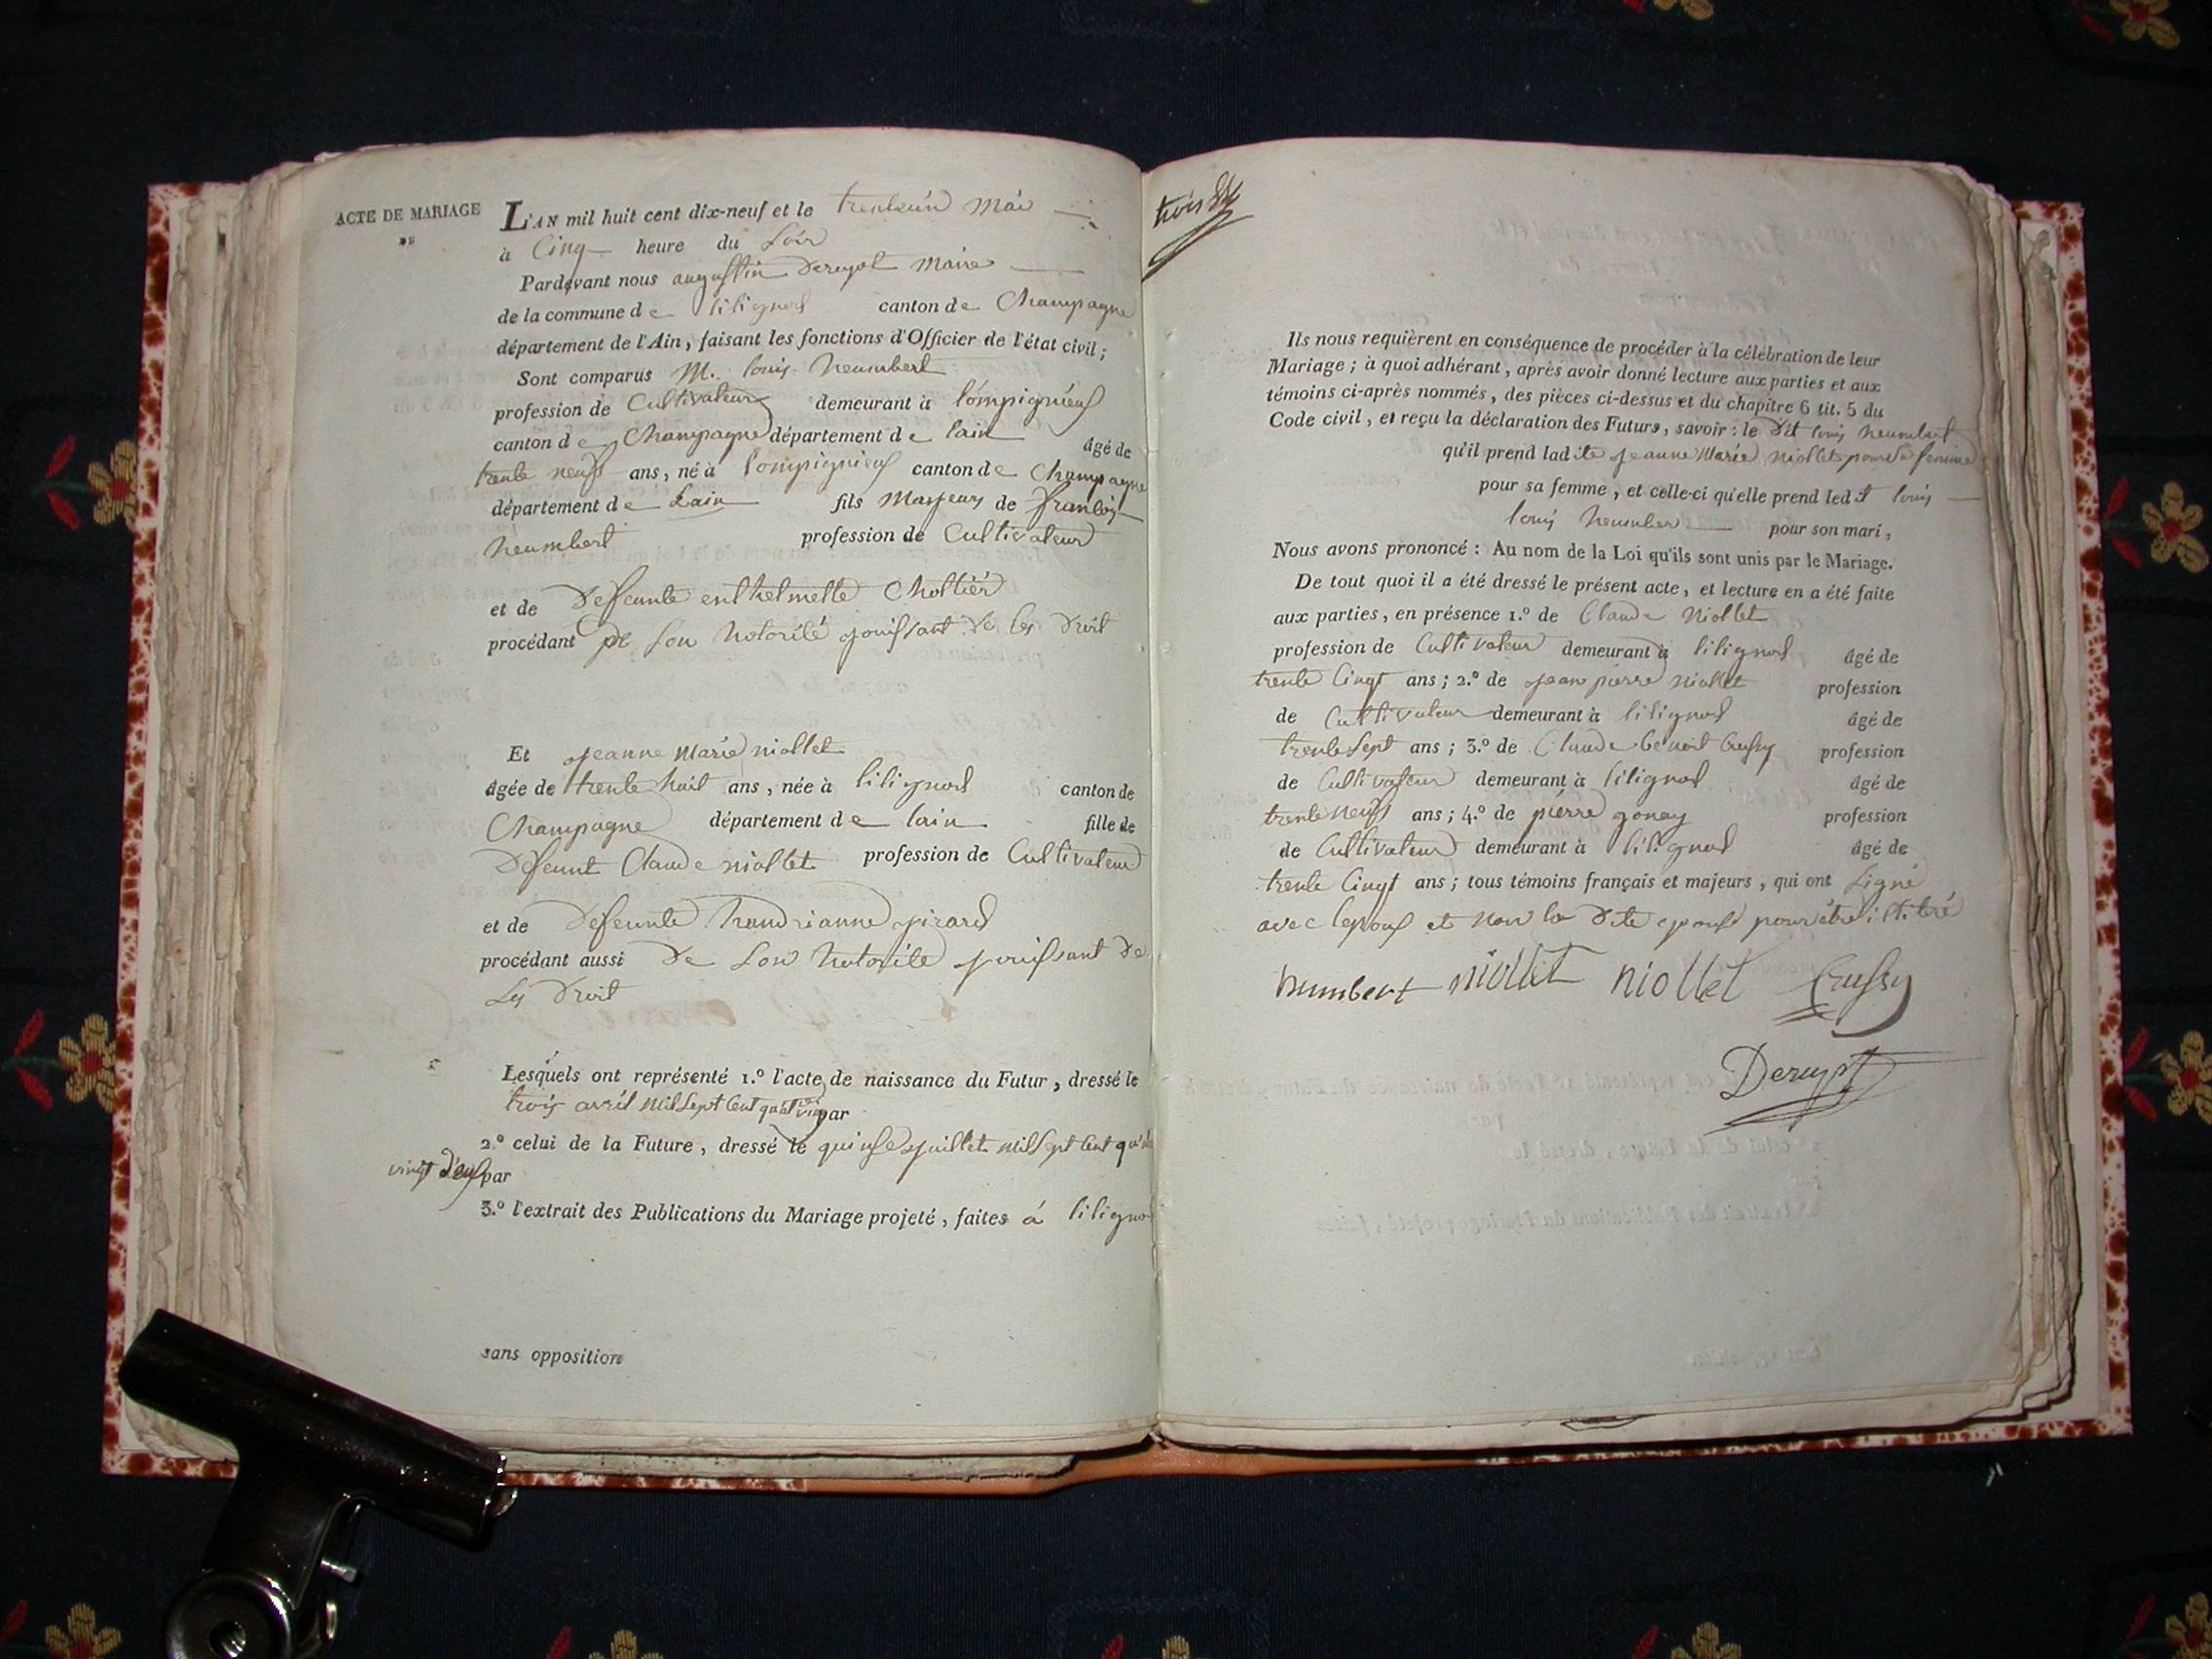 ACTE DE MARIAGE
DE
L'AN mil huit cent dix-neuf et le trenteun mai
à Cinq heure du Soir
Pardevant nous augustin Derupt Maire
de la commune de lilignod canton de Champagne
département de l'Ain, faisant les fonctions d'Officier de l'état civil;
Sont comparus M. louis heumbert
profession de Cultivateur demeurant à lompignieux
canton de Champagne département de lain âgé de
trente neuf ans, né à lompignieux canton de Champagne
département de Lain fils Majeur de francois
heumbert profession de Cultivateur
et de Defeunte enthelmette
procédant de son hotorité jouissant de ses Droit
Et jeanne Marie niollet
âgée de trente huit ans, née à lilignod canton de
Champagne département de lain fille de
Defeunt Claude niollet profession de Cultivateur
et de Defeunte handrianne
procédant aussi de Son hotorité jouissant de
Ses Droit
Lesquels ont représenté 1.º l'acte de naissance du Futur, dressé le
trois avril mil Sept Cent par
2.º celui de la Future, dressé le quinse juillet mil Sept Cent
vingt par
3.º l'extrait des Publications du Mariage projeté, faites á lilignod
sans opposition
trois
Ils nous requièrent en conséquence de procéder à la célébration de leur
Mariage; à quoi adhérant, après avoir donné lecture aux parties et aux
témoins ci-après nommés, des pièces ci-dessus et du chapitre 6 tit. 5 du
Code civil, et reçu la déclaration des Futurs, savoir: le dit louis heumbert
qu'il prend ladite jeanne Marie niollet pour sa femme
pour sa femme, et celle-ci qu'elle prend ledit louis
louis heumber pour son mari,
Nous avons prononcé: Au nom de la Loi qu'ils sont unis par le Mariage.
De tout quoi il a été dressé le présent acte, et lecture en a été faite
aux parties, en présence 1.º de Claude Niollet
profession de Cultivateur demeurant à lilignod âgé de
trente Cinqt ans; 2.º de jean pierre niollet profession
de Cultivateur demeurant à lilignod âgé de
trente Sept ans; 3.º de Claude benoit Crussy profession
de Cultivateur demeurant à lilignod âgé de
trente neuf ans; 4.º de pierre gonay profession
de Cultivateur demeurant à lilignod âgé de
trente Cinqt ans; tous témoins français et majeurs, qui ont Signé
avec lepoux et non la Dite epouse pour être
humbert niollet niollet Crussy
Derupt